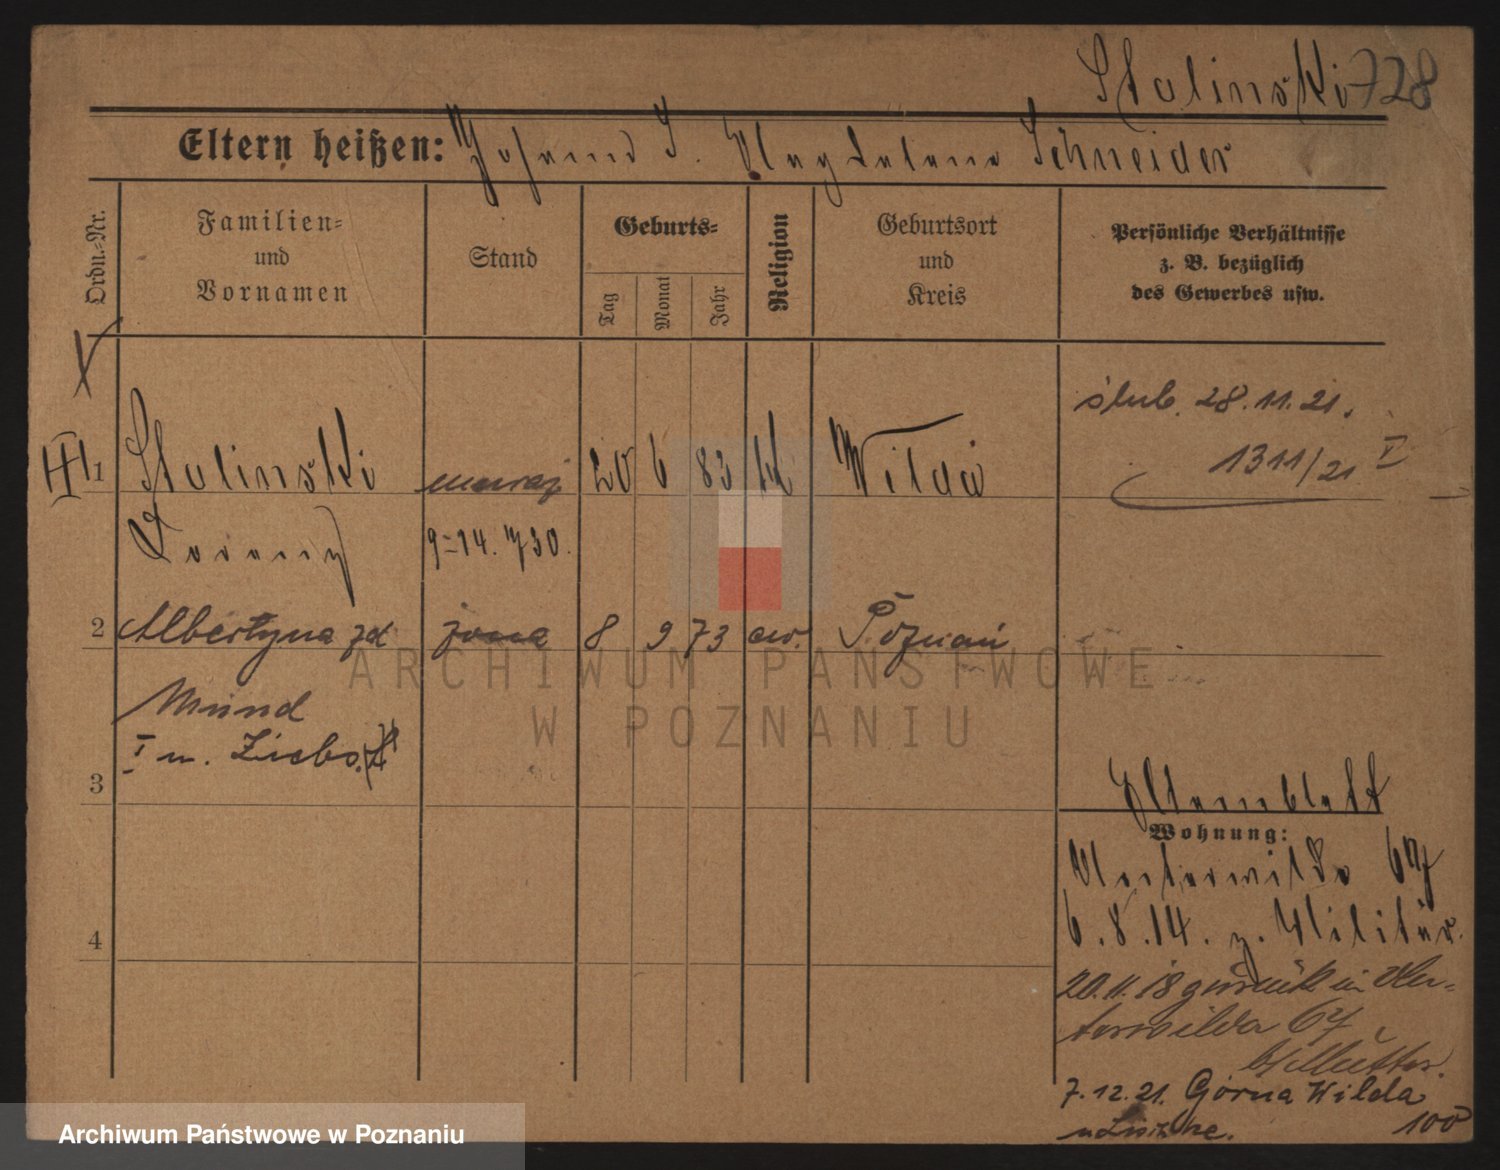 Stalinski 728
Eltern heißen: Johann S. Magdalena Schneider
Ordn.-Nr.
Familien-
und
Vornamen
Stand
Geburts-
Tag
Monat
Jahr
Religion
Geburtsort
und
Kreis
Persönliche Verhältnisse
z. B. bezüglich
des Gewerbes usw.
ślub. 28.11.21.
1311/21 V
1 Stalinski 20 6 83 kt Wilda
Lorenz 9=14. 730.
2 Albertyna zd żona 8 9 73 ew. Poznań
Mund
I
3
Elternblatt
Wohnung:
Unterwilda 67
6.8.14. z. Militär.
4
20.11.18 zurück in Un-
terwilda 67
b/ Mutter.
7.12.21. Górna Wilda
100
ARCHIWUM PAŃSTWOWE
W POZNANIU
Archiwum Państwowe w Poznaniu